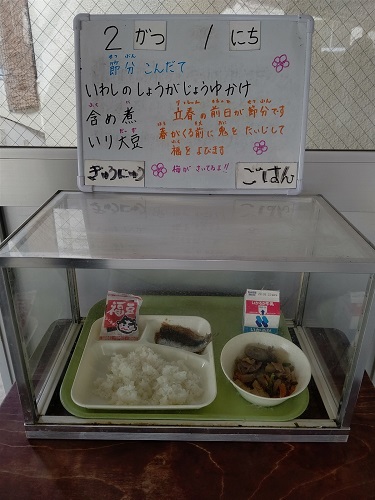 2 がつ 1 にち
節分 こんだて
いわしのしょうがじょうゆかけ
含め煮
いり大豆
立春の前日が節分です
春がくる前に鬼をたいじして
福をよびます
ぎゅうにゅう
梅がさいてるよ!!
ごはん
福豆